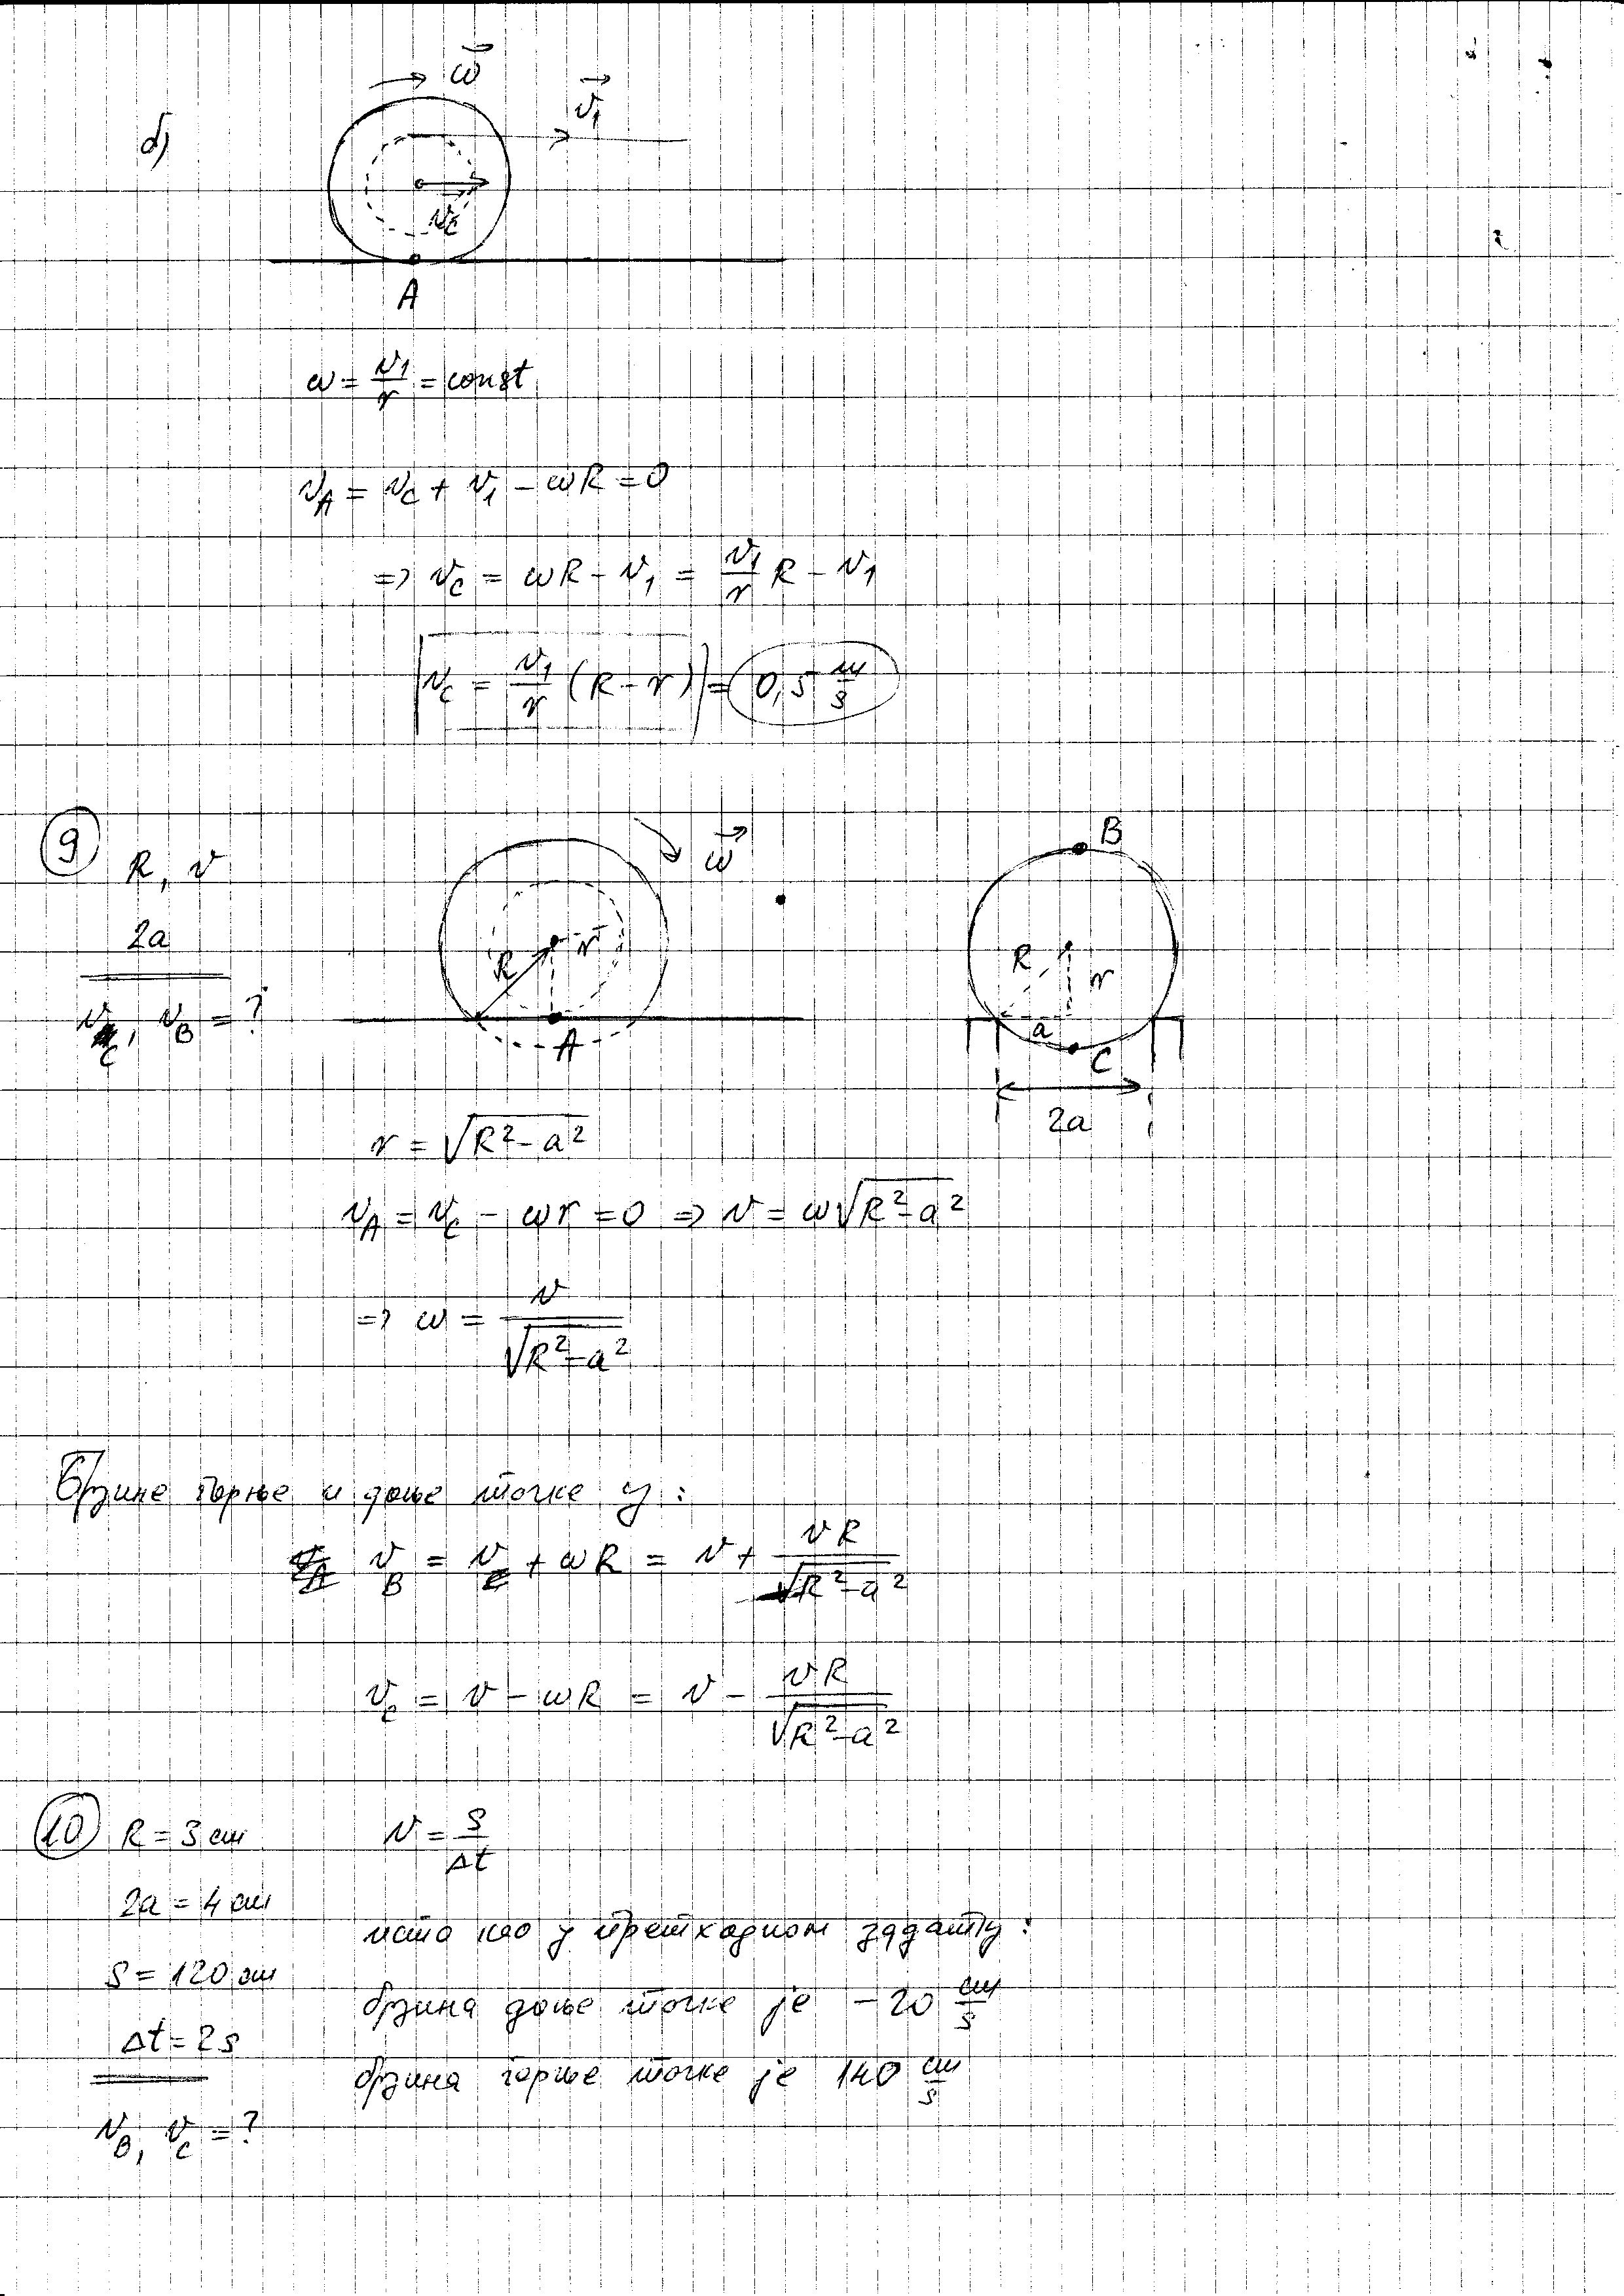 ω⃗
v⃗₁
б)
v⃗_C
A
ω = v₁/r = const
v_A = v_C + v₁ - ωR = 0
=> v_C = ωR - v₁ = v₁/r R - v₁
v_C = v₁/r (R - r) = 0,5 m/s
9
R, v
2a
v_C, v_B = ?
ω⃗
R
r
A
B
R
r
a
C
2a
r = √(R² - a²)
v_A = v_C - ωr = 0 => v = ω√(R² - a²)
=> ω = v/√(R² - a²)
Брзине горње и доње тачке су:
v_B = v + ωR = v + vR/√(R² - a²)
v_C = v - ωR = v - vR/√(R² - a²)
10
R = 3 cm
v = s/Δt
2a = 4 cm
исто као у претходном задатку:
s = 120 cm
брзина доње тачке је -20 cm/s
Δt = 2s
брзина горње тачке је 140 cm/s
v_B, v_C = ?